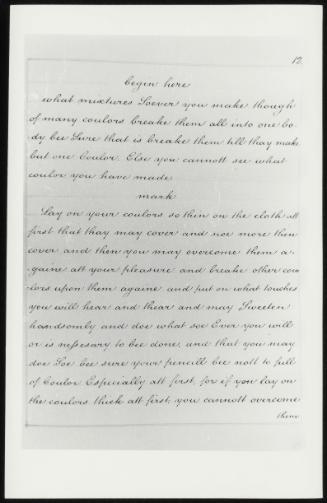 12.
begin here
what mixtures Soever you make though
of many coulors breake them all into one bo-
dy bee Sure that is breake them till thay make
but one Coulor. Else you cannott see what
coulor you have made
mark
Lay on your coulors so thin on the cloth att
first that thay may cover and noe more then
cover and then you may overcome them a-
gaine att your pleasure and breake other cou-
lors upon them againe and put on what touches
you will hear and thear and may Sweeten
handsomly and doe what soe Ever you will
or is nessesary to bee done, and that you may
doe Soe bee sure your pencill bee nott to full
of Coulor Especially att first, for if you lay on
the coulors thick att first, you cannott overcome
them